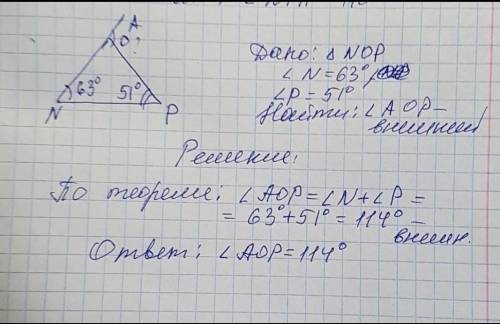 A
O
?
63°
51°
N
P
Дано: △ NOP
∠N=63°,
∠P = 51°
Найти: ∠AOP –
внешний
Решение:
По теореме: ∠AOP = ∠N + ∠P =
= 63° + 51° = 114° –
внешн.
Ответ: ∠AOP = 114°